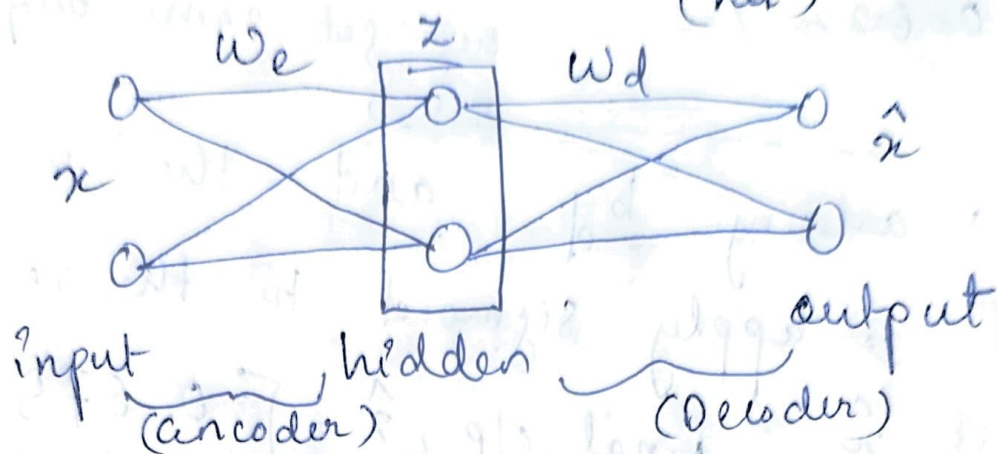 We z Wd
x x̂
input hidden output
(encoder) (Decoder)